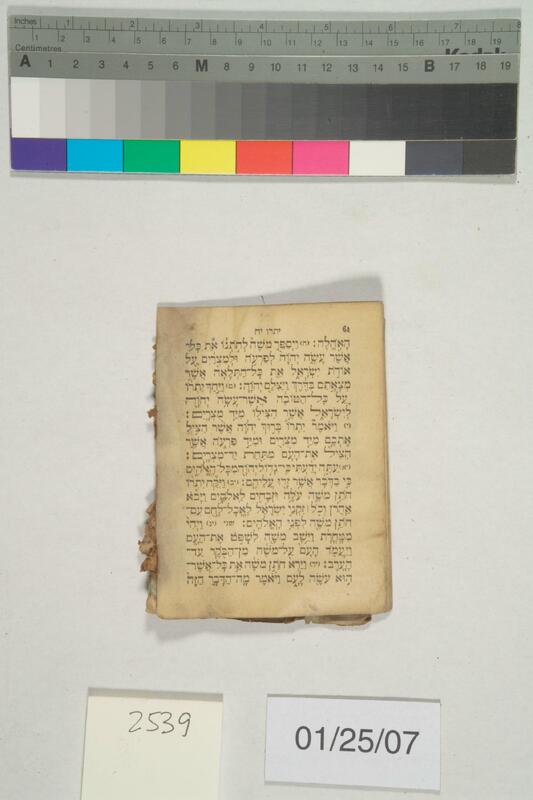 Inches 1 2 3 4 5 6 7 8
1 2 3 4 5 6 7 8 9 10 11 12 13 14 15 16 17 18 19
Centimetres
Kodak
A 1 2 3 4 5 6 M 8 9 10 11 12 13 14 15 B 17 18 19
יתרו יח 64
הָאֹהֱלָה׃ (ח) וַיְסַפֵּר מֹשֶׁה לְחֹתְנוֹ אֵת כׇּל־
אֲשֶׁר עָשָׂה יְהוָֹה לְפַרְעֹה וּלְמִצְרַיִם עַל
אוֹדֹת יִשְׂרָאֵל אֵת כׇּל־הַתְּלָאָה אֲשֶׁר
מְצָאָתַם בַּדֶּרֶךְ וַיַּצִּלֵם יְהוָֹה׃ (ט) וַיִּחַדְּ יִתְרוֹ
עַל כׇּל־הַטּוֹבָה אֲשֶׁר־עָשָׂה יְהוָֹה
לְיִשְׂרָאֵל אֲשֶׁר הִצִּילוֹ מִיַּד מִצְרָיִם׃
(י) וַיֹּאמֶר יִתְרוֹ בָּרוּךְ יְהוָֹה אֲשֶׁר הִצִּיל
אֶתְכֶם מִיַּד מִצְרַיִם וּמִיַּד פַּרְעֹה אֲשֶׁר
הִצִּיל אֶת־הָעָם מִתַּחַת יַד־מִצְרָיִם׃
(יא) עַתָּה יָדַעְתִּי כִּי־גָדוֹל יְהוָֹה מִכׇּל־הָאֱלֹהִים
כִּי בַדָּבָר אֲשֶׁר זָדוּ עֲלֵיהֶם׃ (יב) וַיִּקַּח יִתְרוֹ
חֹתֵן מֹשֶׁה עֹלָה וּזְבָחִים לֵאלֹהִים וַיָּבֹא
אַהֲרֹן וְכֹל זִקְנֵי יִשְׂרָאֵל לֶאֱכׇל־לֶחֶם עִם־
חֹתֵן מֹשֶׁה לִפְנֵי הָאֱלֹהִים׃ שני (יג) וַיְהִי
מִמׇּחֳרָת וַיֵּשֶׁב מֹשֶׁה לִשְׁפֹּט אֶת־הָעָם
וַיַּעֲמֹד הָעָם עַל־מֹשֶׁה מִן־הַבֹּקֶר עַד־
הָעָרֶב׃ (יד) וַיַּרְא חֹתֵן מֹשֶׁה אֵת כׇּל־אֲשֶׁר־
הוּא עֹשֶׂה לָעָם וַיֹּאמֶר מָה־הַדָּבָר הַזֶּה
2539
01/25/07